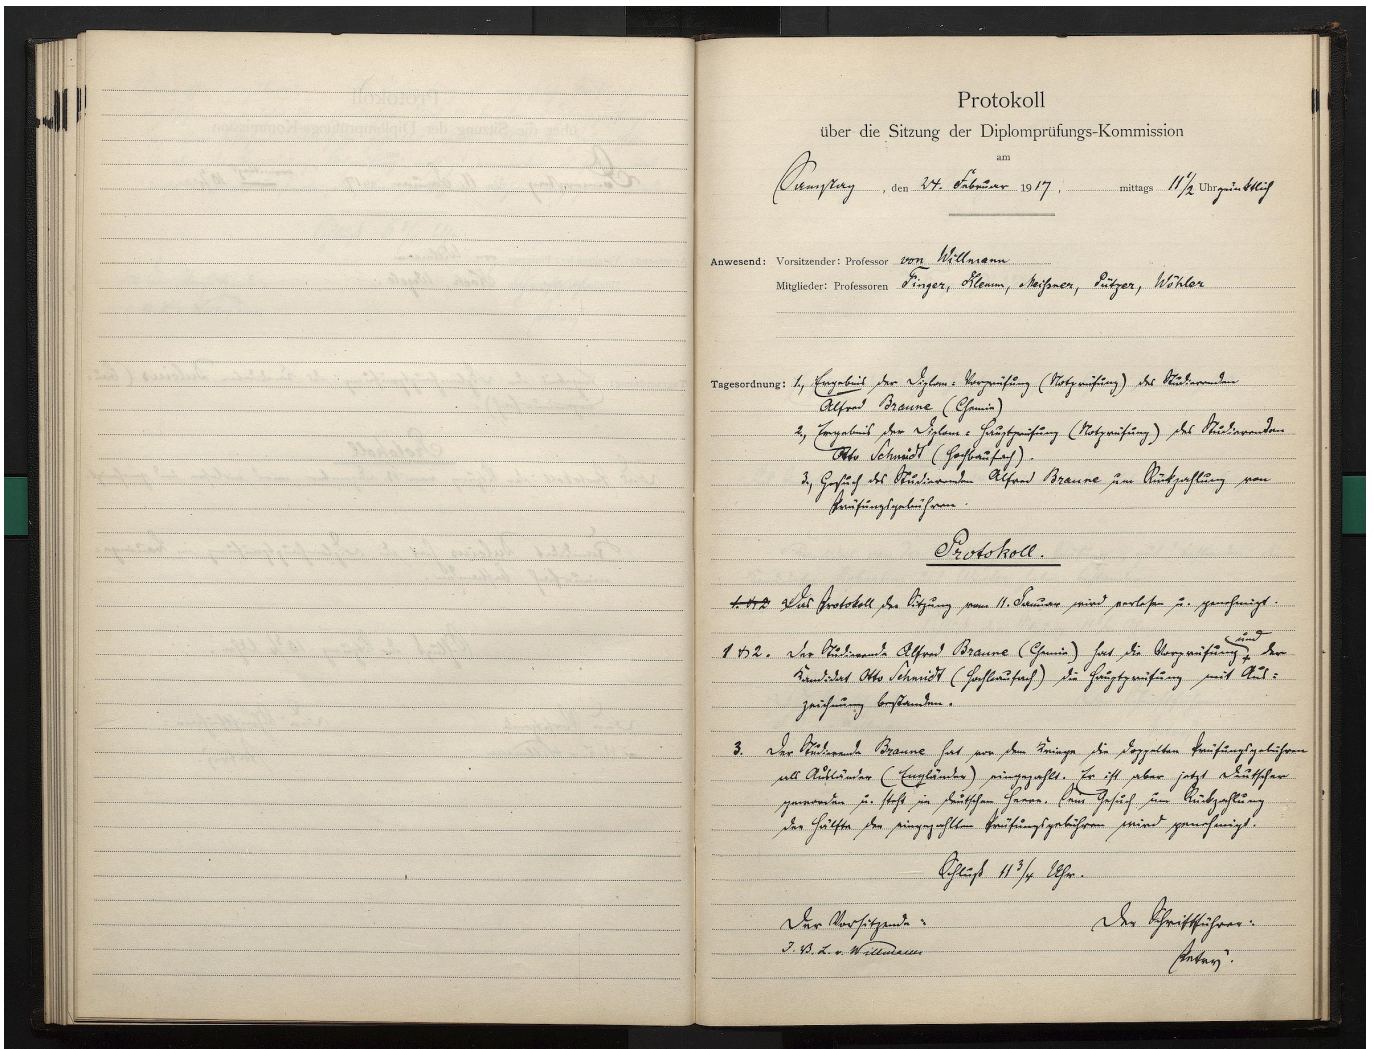 Protokoll
über die Sitzung der Diplomprüfungs-Kommission
am
Samstag, den 24. Februar 1917, mittags 11 1/2 Uhr pünktlich
Anwesend: Vorsitzender: Professor von Willmann
Mitglieder: Professoren Finger, Klemm, Meißner, Pützer, Wöhler
Tagesordnung: 1., Ergebnis der Diplom-Vorprüfung (Notprüfung) des Studierenden
Alfred Braune (Chemie)
2., Ergebnis der Diplom-Hauptprüfung (Notprüfung) des Studierenden
Otto Schmidt (Hochbaufach).
3., Gesuch des Studierenden Alfred Braune um Rückzahlung von
Prüfungsgebühren.
Protokoll.
1. & 2 Das Protokoll der Sitzung vom 11. Januar wird verlesen u. genehmigt.
1 & 2. Der Studierende Alfred Braune (Chemie) hat die Vorprüfung und der
Kandidat Otto Schmidt (Hochbaufach) die Hauptprüfung mit Aus-
zeichnung bestanden.
3. Der Studierende Braune hat vor dem Kriege die doppelten Prüfungsgebühren
als Ausländer (Engländer) eingezahlt. Er ist aber jetzt Deutscher
geworden u. steht im deutschen Heere. Sein Gesuch um Rückzahlung
der Hälfte der eingezahlten Prüfungsgebühren wird genehmigt.
Schluß 11 3/4 Uhr.
Der Vorsitzende: Der Schriftführer:
I. V. L. v. Willmann
Petry.